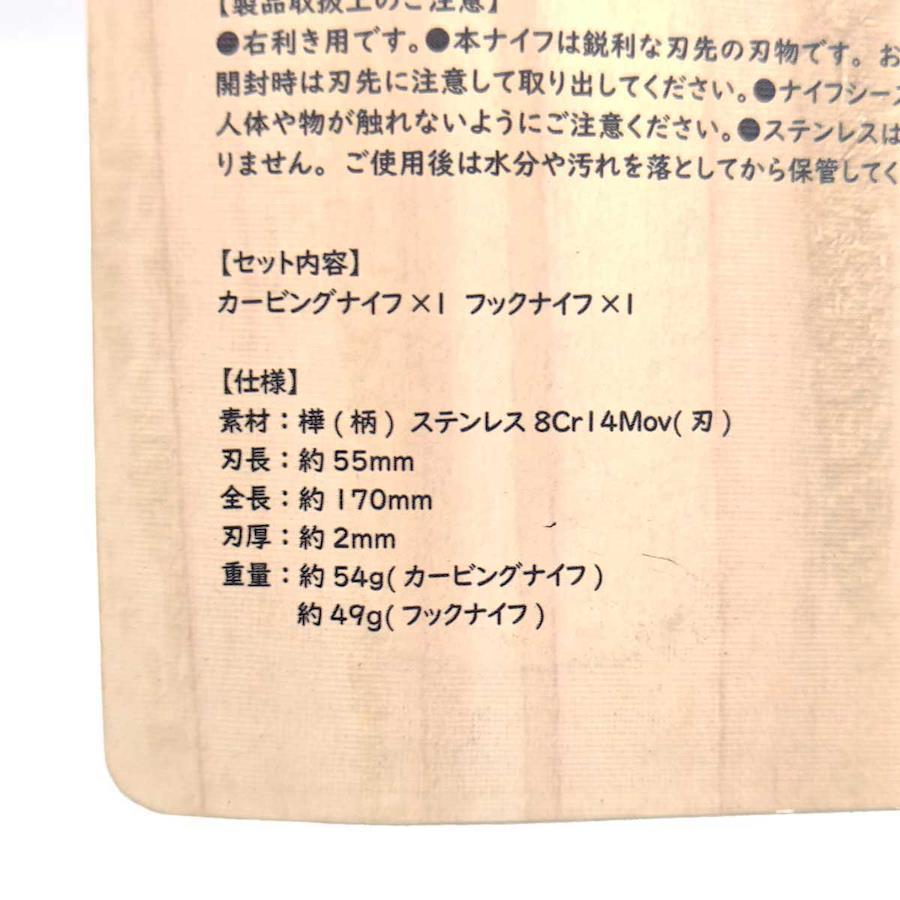 【製品取扱上のご注意】
●右利き用です。●本ナイフは鋭利な刃先の刃物です。お
開封時は刃先に注意して取り出してください。●ナイフシース
人体や物が触れないようにご注意ください。●ステンレスは
りません。ご使用後は水分や汚れを落としてから保管してく
【セット内容】
カービングナイフ×1 フックナイフ×1
【仕様】
素材：樺(柄) ステンレス8Cr14Mov(刃)
刃長：約55mm
全長：約170mm
刃厚：約2mm
重量：約54g(カービングナイフ)
約49g(フックナイフ)